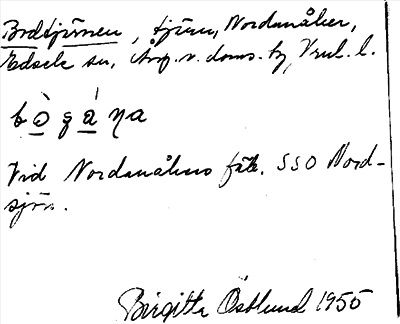 Brdtjärnen, tjärn, Nordanåker,
Edsele sn, Ång. v. doms. hg, Vnl. l.
bògána
Vid Nordanåkers fäb. SSO Nord-
sjön.
Birgitta Östlund 1955